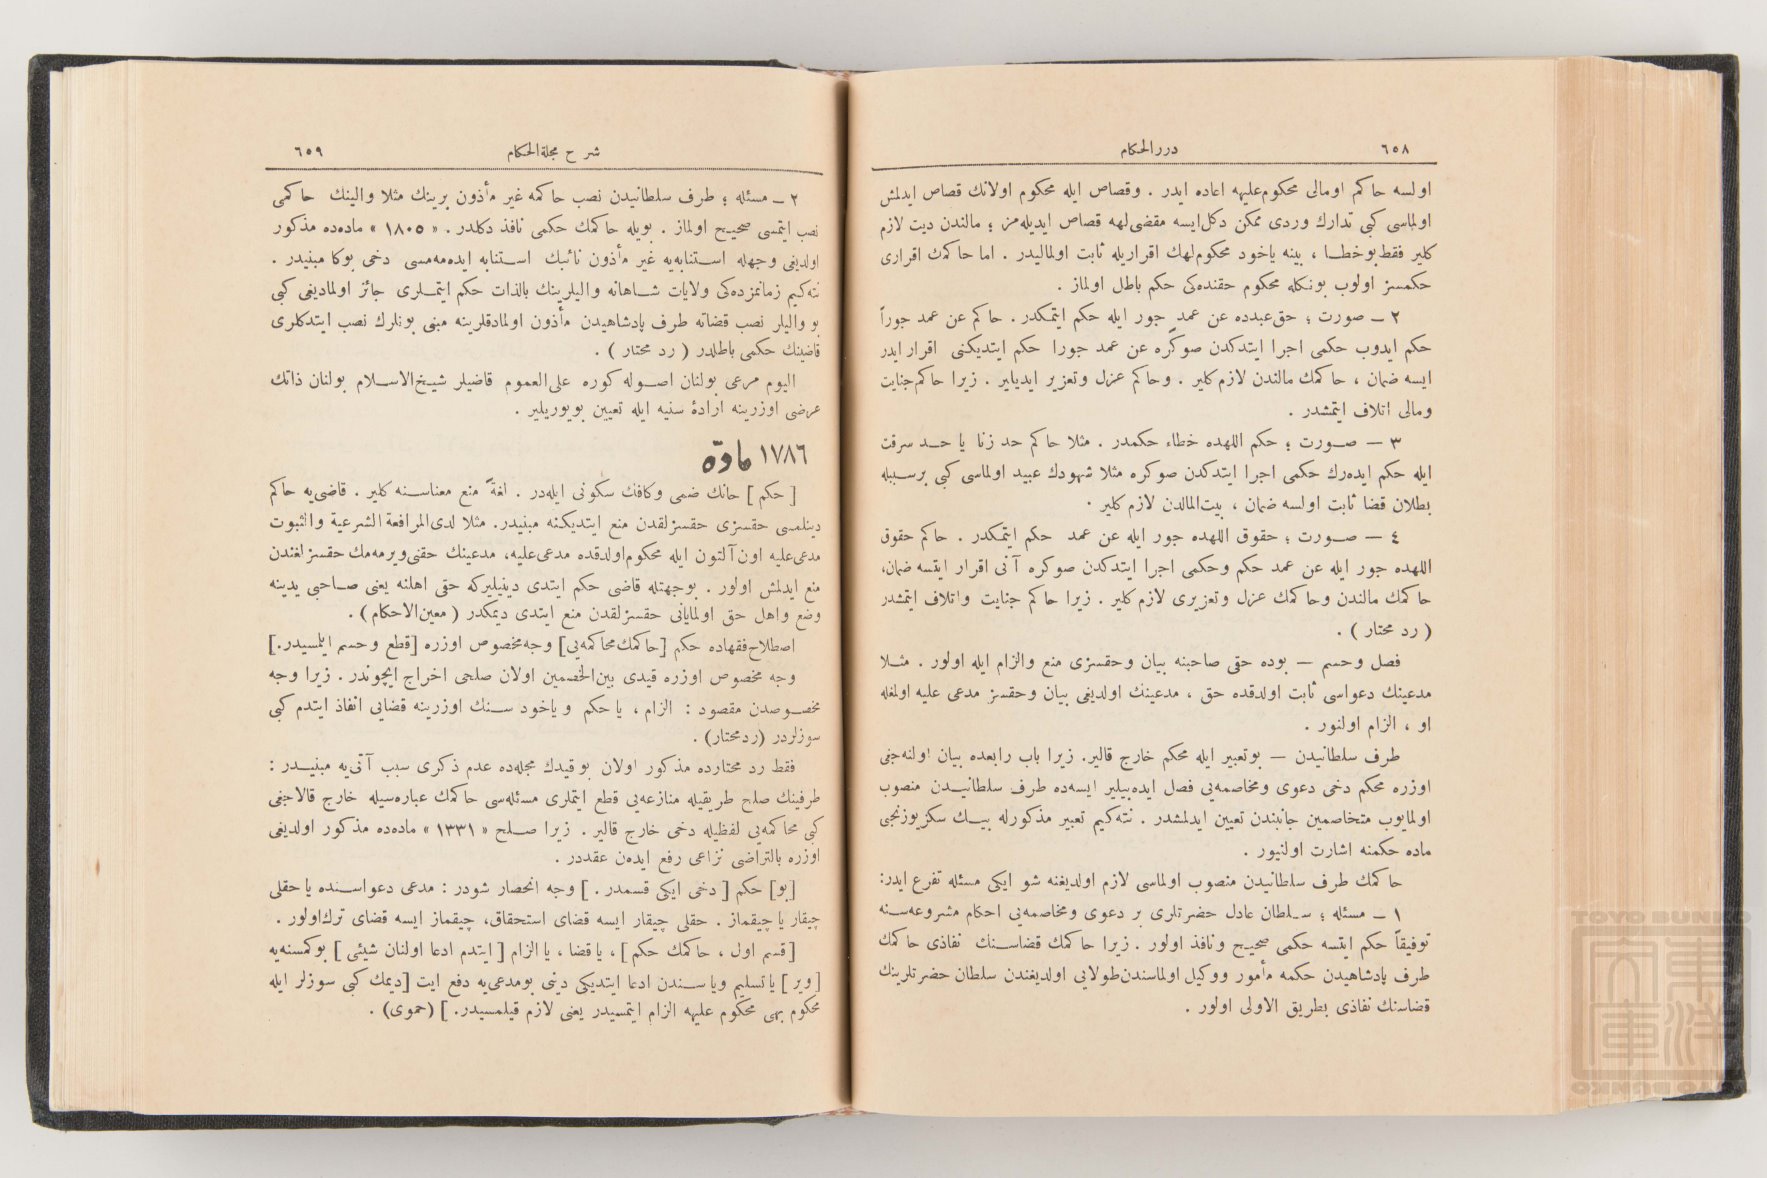 ٦٥٨
دررالحكام
اولسه حاكم اومالى محكوم‌عليهه اعاده ايدر . وقصاص ايله محكوم اولانك قصاص ايدلمش
اولماسى كبى تدارك وردى ممكن دكل‌ايسه مقضى‌لهه قصاص ايديله‌مز ؛ مالندن ديت لازم
كلير فقط بوخطا ، بينه ياخود محكوم‌لهك اقراريله ثابت اولماليدر . اما حاكمك اقرارى
حكمسز اولوب بونكله محكوم حقنده‌كى حكم باطل اولماز .
٢ — صورت ؛ حق‌عبدده عن عمد جور ايله حكم ايتمكدر . حاكم عن عمد جوراً
حكم ايدوب حكمى اجرا ايتدكدن صوكره عن عمد جورا حكم ايتديكنى اقرار ايدر
ايسه ضمان ، حاكمك مالندن لازم كلير . وحاكم عزل وتعزير ايديلير . زيرا حاكم جنايت
ومالى اتلاف ايتمشدر .
٣ — صورت ؛ حكم اللهده خطاء حكمدر . مثلا حاكم حد زنا يا حد سرقت
ايله حكم ايده‌رك حكمى اجرا ايتدكدن صوكره مثلا شهودك عبيد اولماسى كبى برسببله
بطلان قضا ثابت اولسه ضمان ، بيت‌المالدن لازم كلير .
٤ — صورت ؛ حقوق اللهده جور ايله عن عمد حكم ايتمكدر . حاكم حقوق
اللهده جور ايله عن عمد حكم وحكمى اجرا ايتدكدن صوكره آنى اقرار ايتسه ضمان،
حاكمك مالندن وحاكمك عزل وتعزيرى لازم كلير . زيرا حاكم جنايت واتلاف ايتمشدر
( رد محتار ) .
فصل وحسم — بوده حقى صاحبنه بيان وحقسزى منع والزام ايله اولور . مثلا
مدعينك دعواسى ثابت اولدقده حق ، مدعينك اولديغى بيان وحقسز مدعى عليه اولمغله
او ، الزام اولنور .
طرف سلطانيدن — بوتعبير ايله محكم خارج قالير. زيرا باب رابعده بيان اولنه‌جغى
اوزره محكم دخى دعوى ومخاصمه‌يى فصل ايده‌بيلير ايسه‌ده طرف سلطانيدن منصوب
اولمايوب متخاصمين جانبندن تعيين ايدلمشدر . نته‌كيم تعبير مذكورله بيك سكزيوزنجى
ماده حكمنه اشارت اولنيور .
حاكمك طرف سلطانيدن منصوب اولماسى لازم اولديغنه شو ايكى مسئله تفرع ايدر:
١ — مسئله ؛ سلطان عادل حضرتلرى بر دعوى ومخاصمه‌يى احكام مشروعه‌سنه
توفيقاً حكم ايتسه حكمى صحيح ونافذ اولور . زيرا حاكمك قضاسنك نفاذى حاكمك
طرف پادشاهيدن حكمه مأمور ووكيل اولماسندن طولايى اولديغندن سلطان حضرتلرينك
قضاسنك نفاذى بطريق الاولى اولور .
شرح مجلةالحكام
٦٥٩
٢ — مسئله ؛ طرف سلطانيدن نصب حاكمه غير مأذون برينك مثلا والينك حاكمى
نصب ايتمسى صحيح اولماز . بويله حاكمك حكمى نافذ دكلدر . « ١٨٠٥ » ماده‌ده مذكور
اولديغى وجهله استنابه‌يه غير مأذون نائبك استنابه ايده‌مه‌مسى دخى بوكا مبنيدر .
نته‌كيم زمانمزده‌كى ولايات شاهانه واليلرينك بالذات حكم ايتملرى جائز اولماديغى كبى
بو واليلر نصب قضاته طرف پادشاهيدن مأذون اولمادقلرينه مبنى بونلرك نصب ايتدكلرى
قاضينك حكمى باطلدر ( رد محتار ) .
اليوم مرعى بولنان اصوله كوره على‌العموم قاضيلر شيخ‌الاسلام بولنان ذاتك
عرضى اوزرينه ارادهٔ سنيه ايله تعيين بويوريلير .
١٧٨٦ مادّه
[ حكم ] حانك ضمى وكافك سكونى ايله‌در . لغةً منع معناسنه كلير . قاضى‌يه حاكم
دينلمسى حقسزى حقسزلقدن منع ايتديكنه مبنيدر. مثلا لدى‌المرافعة الشرعية والثبوت
مدعى‌عليه اون‌آلتون ايله محكوم‌اولدقده مدعى‌عليه، مدعينك حقنى‌ويرمه‌مك حقسزلغندن
منع ايدلمش اولور . بوجهتله قاضى حكم ايتدى دينيليركه حقى اهلنه يعنى صاحبى يدينه
وضع واهل حق اولمايانى حقسزلقدن منع ايتدى ديمكدر ( معين‌الاحكام ) .
اصطلاح‌فقهاده حكم [حاكمك‌محاكمه‌يى] وجه‌مخصوص اوزره [قطع وحسم ايلمسيدر.]
وجه مخصوص اوزره قيدى بين‌الخصمين اولان صلحى اخراج ايچوندر . زيرا وجه
مخصوصدن مقصود : الزام ، يا حكم وياخود سنك اوزرينه قضايى انفاذ ايتدم كبى
سوزلردر (ردمحتار) .
فقط رد محتارده مذكور اولان بوقيدك مجله‌ده عدم ذكرى سبب آتى‌يه مبنيدر :
طرفينك صلح طريقيله منازعه‌يى قطع ايتملرى مسئله‌سى حاكمك عباره‌سيله خارج قالاجغى
كبى محاكمه‌يى لفظيله دخى خارج قالير . زيرا صلح « ١٣٣١ » ماده‌ده مذكور اولديغى
اوزره بالتراضى نزاعى رفع ايدەن عقددر .
[بو] حكم [ دخى ايكى قسمدر . ] وجه انحصار شودر : مدعى دعواسنده يا حقلى
چيقار يا چيقماز . حقلى چيقار ايسه قضاى استحقاق، چيقماز ايسه قضاى ترك‌اولور .
[قسم اول ، حاكمك حكم] ، يا قضا ، يا الزام [ ايتدم ادعا اولنان شيئى ] بوكمسنه‌يه
[وير ] يا تسليم وياسندن ادعا ايتديكى دينى بومدعى‌يه دفع ايت [ديمك كبى سوزلر ايله
محكوم بهى محكوم عليهه الزام ايتمسيدر يعنى لازم قيلمسيدر. ] (حموى) .
TOYO BUNKO
東洋文庫
TOYO BUNKO